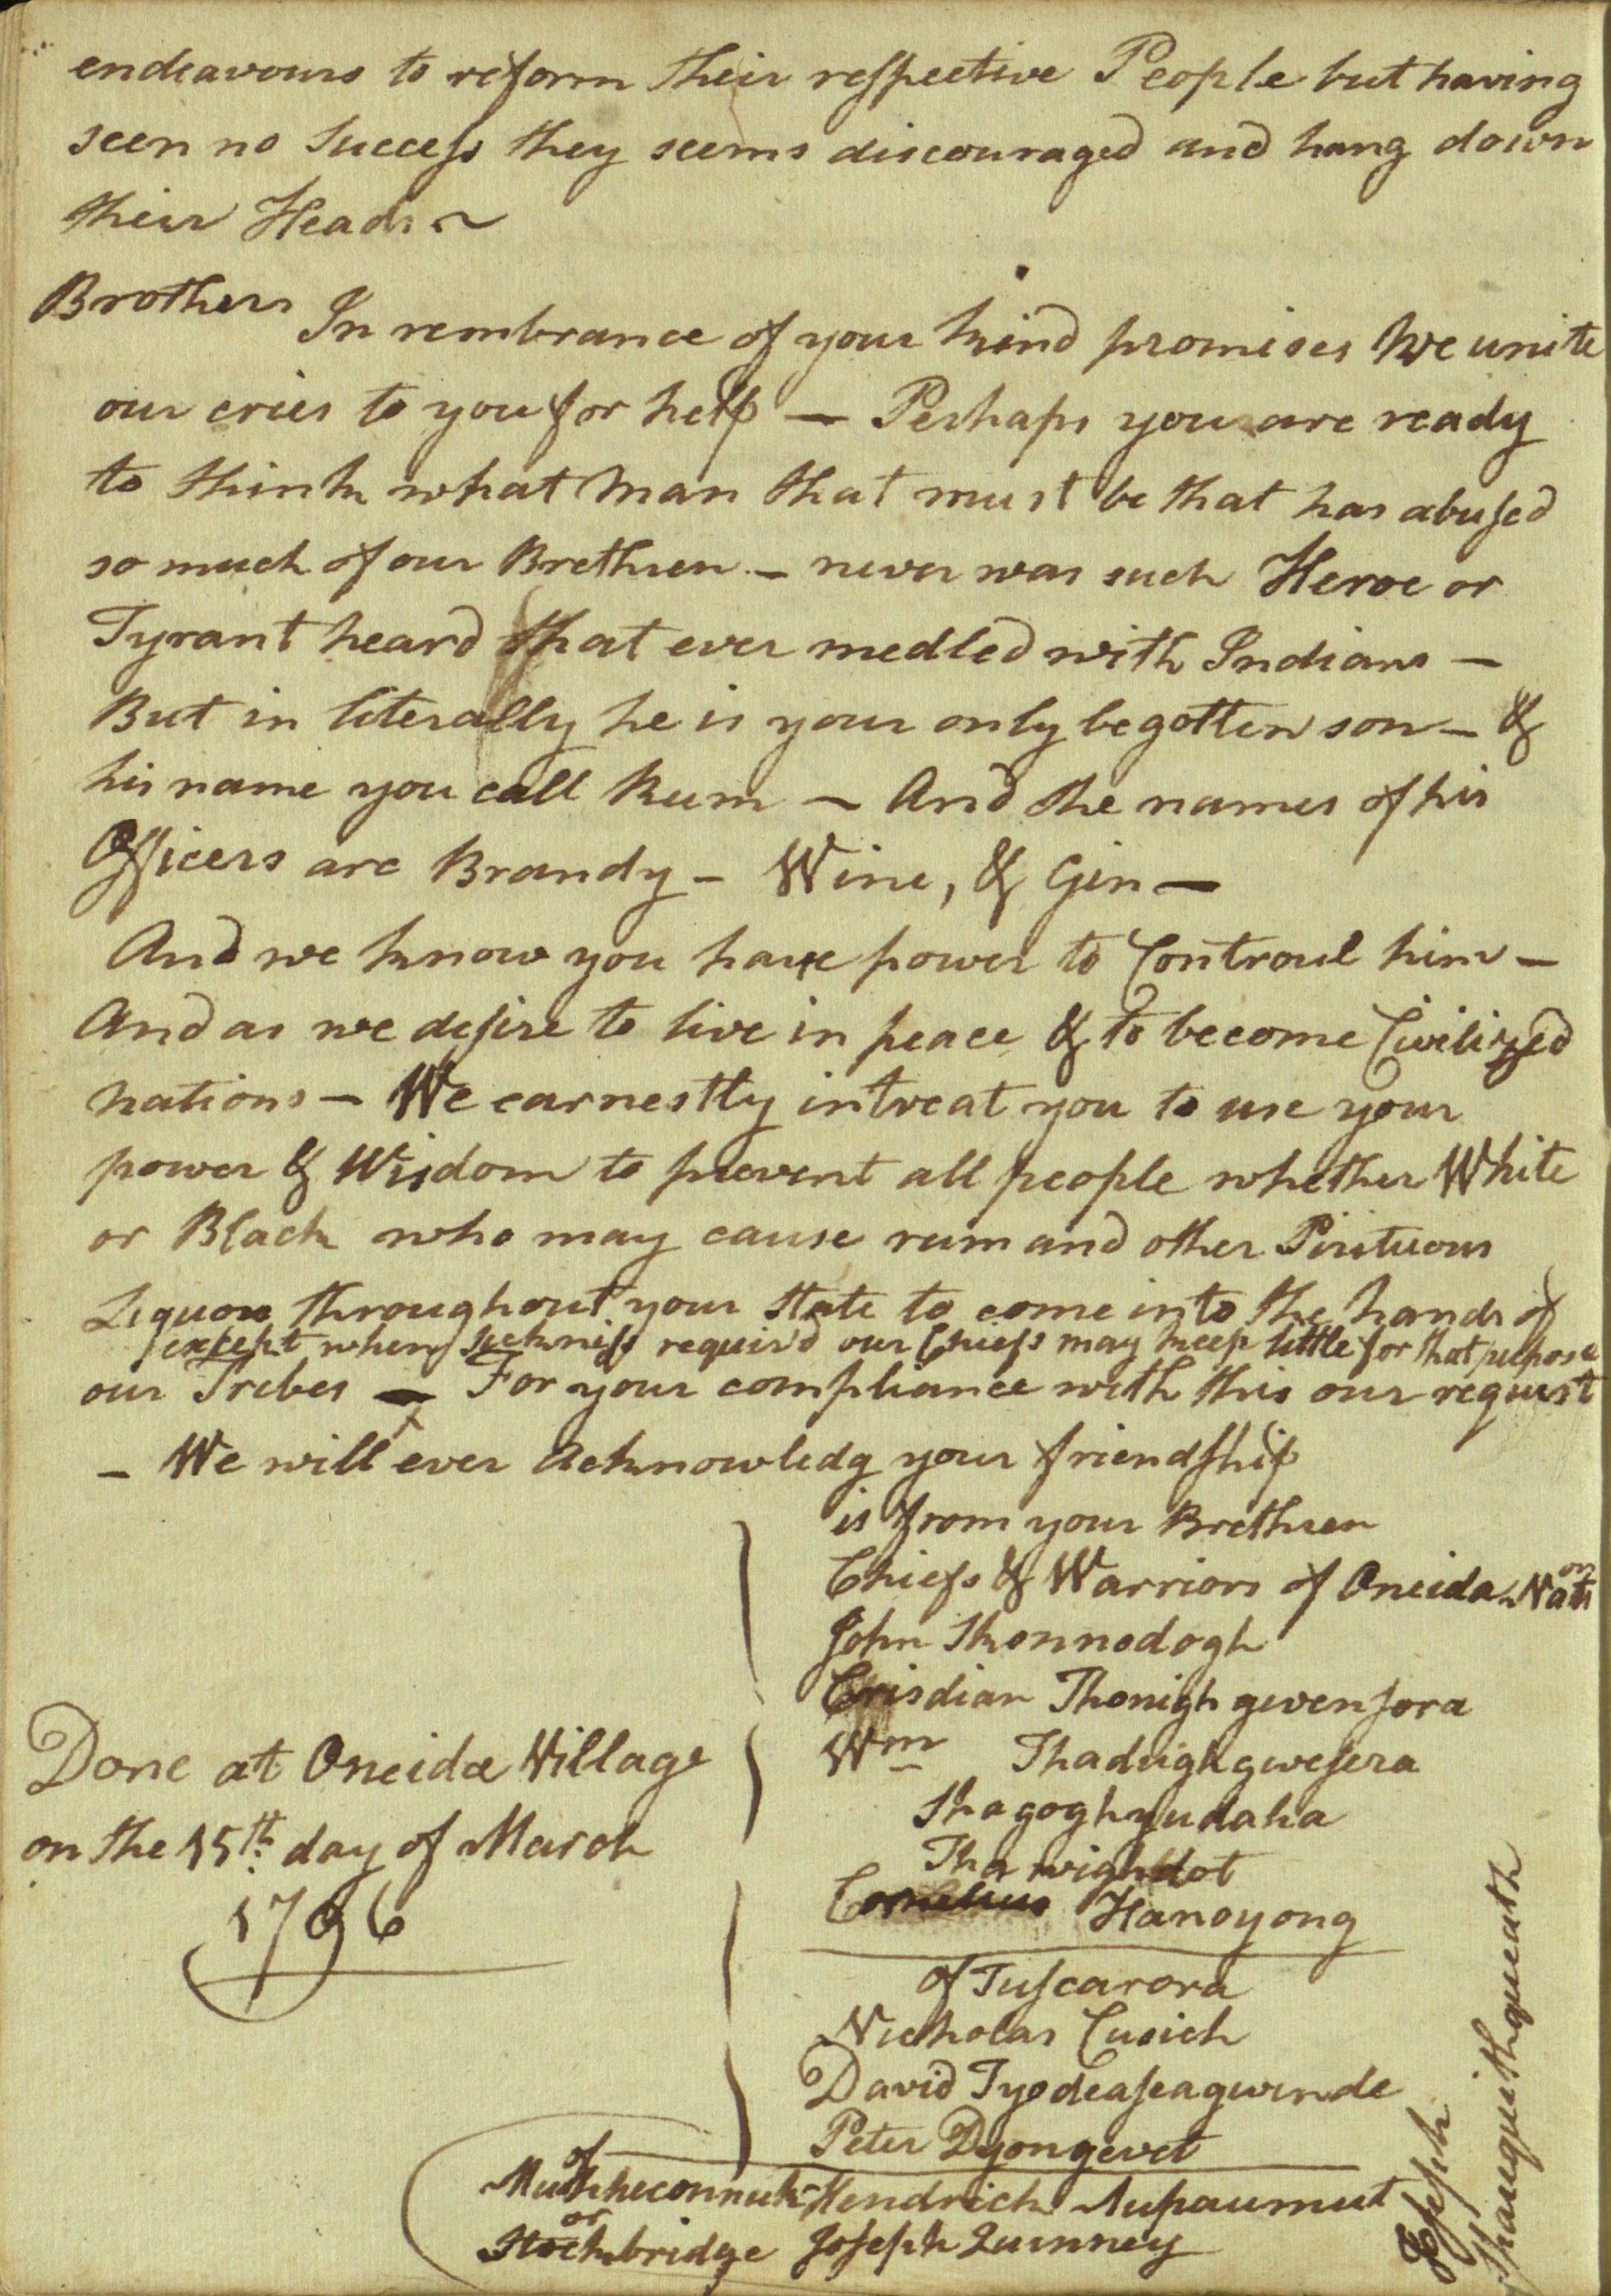 endeavours to reform their respective People but having
seen no Success they seems discouraged and hang down
their Heads ~
Brothers
In rembrance of your kind promises We unite
our cries to you for help — Perhaps you are ready
to think what Man that must be that has abused
so much of our Brethren — never was such Heroe or
Tyrant heard that ever medled with Indians —
But in literally he is your only begotten son — &
his name you call Rum — And the names of his
Officers are Brandy — Wine, & Gin —
And we know you have power to Controul him —
And as we desire to live in peace & to become Civilized
nations — We earnestly intreat you to use your
power & Wisdom to prevent all people whether White
or Black who may cause rum and other Pirituous
Liquors throughout your State to come into the hands of
except when sickness requir'd our Chiefs may keep little for that purpose
our Tribes — For your compliance with this our request
— We will ever acknowledg your friendship
is from your Brethren
Chiefs & Warriors of Oneida Nation
John Skonnodogh
Crisdian Thonigh gwensora
Wm Thadughgwesera
Shagoghyudaha
Thawighdot
Cornelius Hanoyong
Done at Oneida Village
on the 15th day of March
1796
of Tuscarora
Nicholas Cusick
David Tyodeaseagwende
Peter Dyongevet
of Muhheconnuk Hendrick Aupaumut
or Stockbridge Joseph Quinney
Joseph
Shauquithqueath